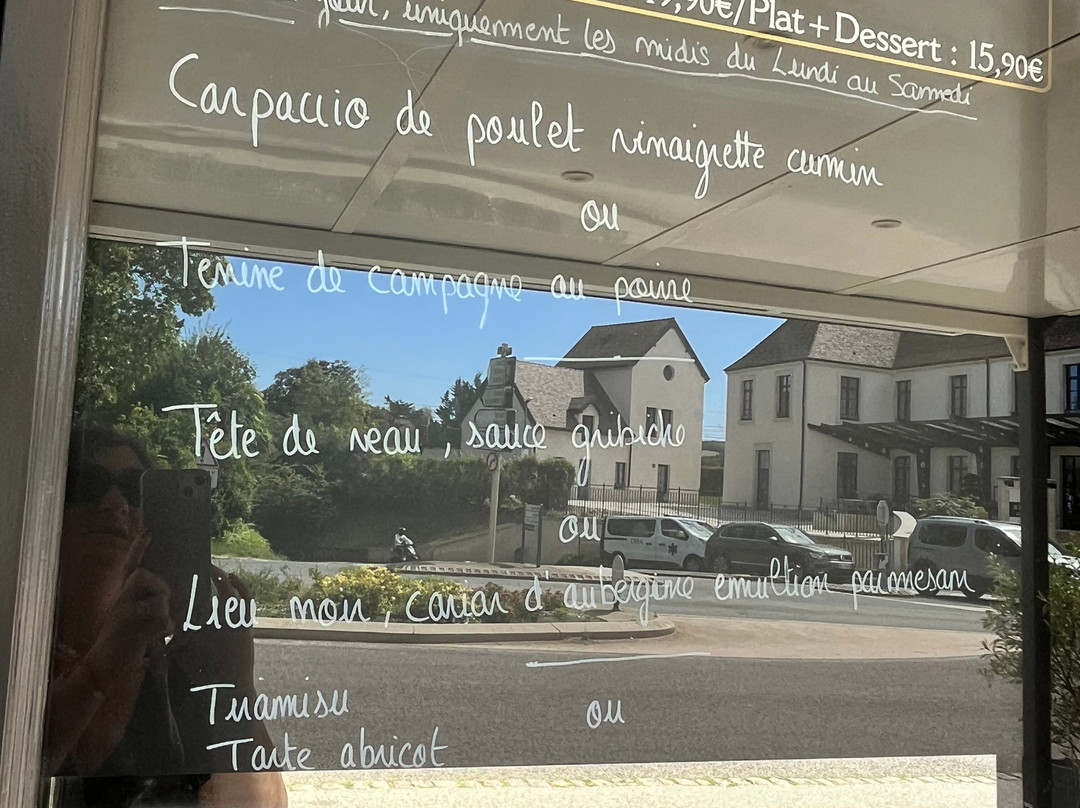 19,90€/Plat + Dessert : 15,90€
jour, uniquement les midis du Lundi au Samedi
Carpaccio de poulet vinaigrette cumin
ou
Terrine de campagne au poivre
Tête de veau, sauce gribiche
ou
Lieu noir, caviar d'aubergine emultion parmesan
Tiramisu
ou
Tarte abricot